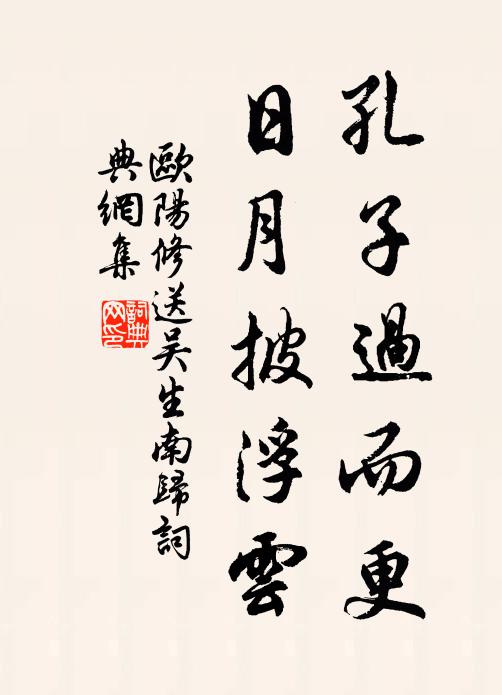 孔子過而更
日月披浮雲
歐陽修送吴生南歸詞
典網集
詞典
网印